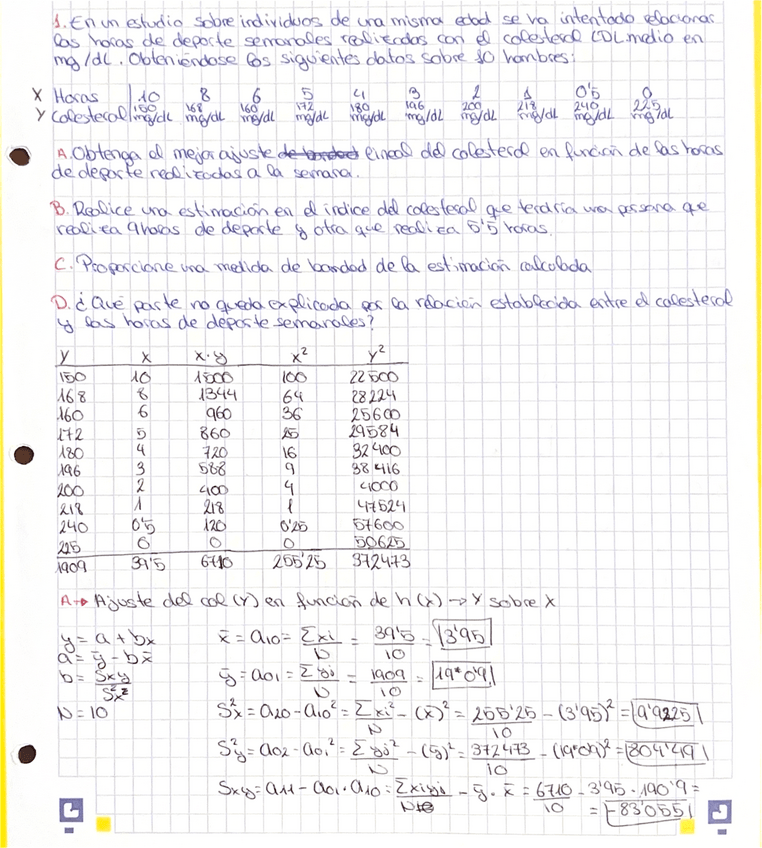 1. En un estudio sobre individuos de una misma edad se ha intentado relacionar
las horas de deporte semanales realizadas con el colesterol LDL medio en
mg/dL. Obteniéndose los siguientes datos sobre 10 hombres:
X Horas | 10 8 6 5 4 3 2 1 0'5 0
Y Colesterol | 150 mg/dL 168 mg/dL 160 mg/dL 172 mg/dL 180 mg/dL 196 mg/dL 200 mg/dL 218 mg/dL 240 mg/dL 225 mg/dL
A. Obtenga el mejor ajuste lineal del colesterol en función de las horas
de deporte realizadas a la semana.
B. Realice una estimación en el índice del colesterol que tendría una persona que
realiza 9 horas de deporte y otra que realiza 5'5 horas.
C. Proporcione una medida de bondad de la estimación calculada
D. ¿Qué parte no queda explicada por la relación establecida entre el colesterol
y las horas de deporte semanales?
Y X X·Y X² Y²
150 10 1500 100 22500
168 8 1344 64 28224
160 6 960 36 25600
172 5 860 25 29584
180 4 720 16 32400
196 3 588 9 38416
200 2 400 4 4000
218 1 218 1 47524
240 0'5 120 0'25 57600
225 0 0 0 50625
1909 39'5 6710 255'25 372473
A→ Ajuste del col (Y) en función de h (X) → Y sobre X
y = a + bx
a = ȳ - bx̄
b = Sxy / Sx²
N = 10
x̄ = a10 = Σxi / N = 39'5 / 10 = 3'95
ȳ = a01 = Σyi / N = 1909 / 10 = 190'9
S²x = a20 - a10² = Σxi² / N - (x̄)² = 255'25 / 10 - (3'95)² = 9'9225
S²y = a02 - a01² = Σyi² / N - (ȳ)² = 372473 / 10 - (190'9)² = 804'49
Sxy = a11 - a01 · a10 = Σxiyi / N - ȳ · x̄ = 6710 / 10 - 3'95 · 190'9 =
= -83'055